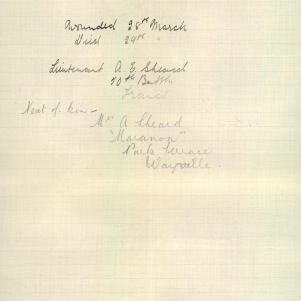 Wounded 28th March
Died 29th "
Lieutenant A. E. Sheard
50th Battn
France
Next of kin -
Mrs A Sheard
"Maranon"
Park Terrace
Wayville.